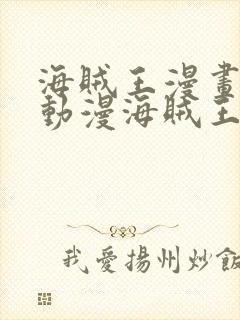 海賊王漫畫
動漫海賊王
我愛揚州炒飯